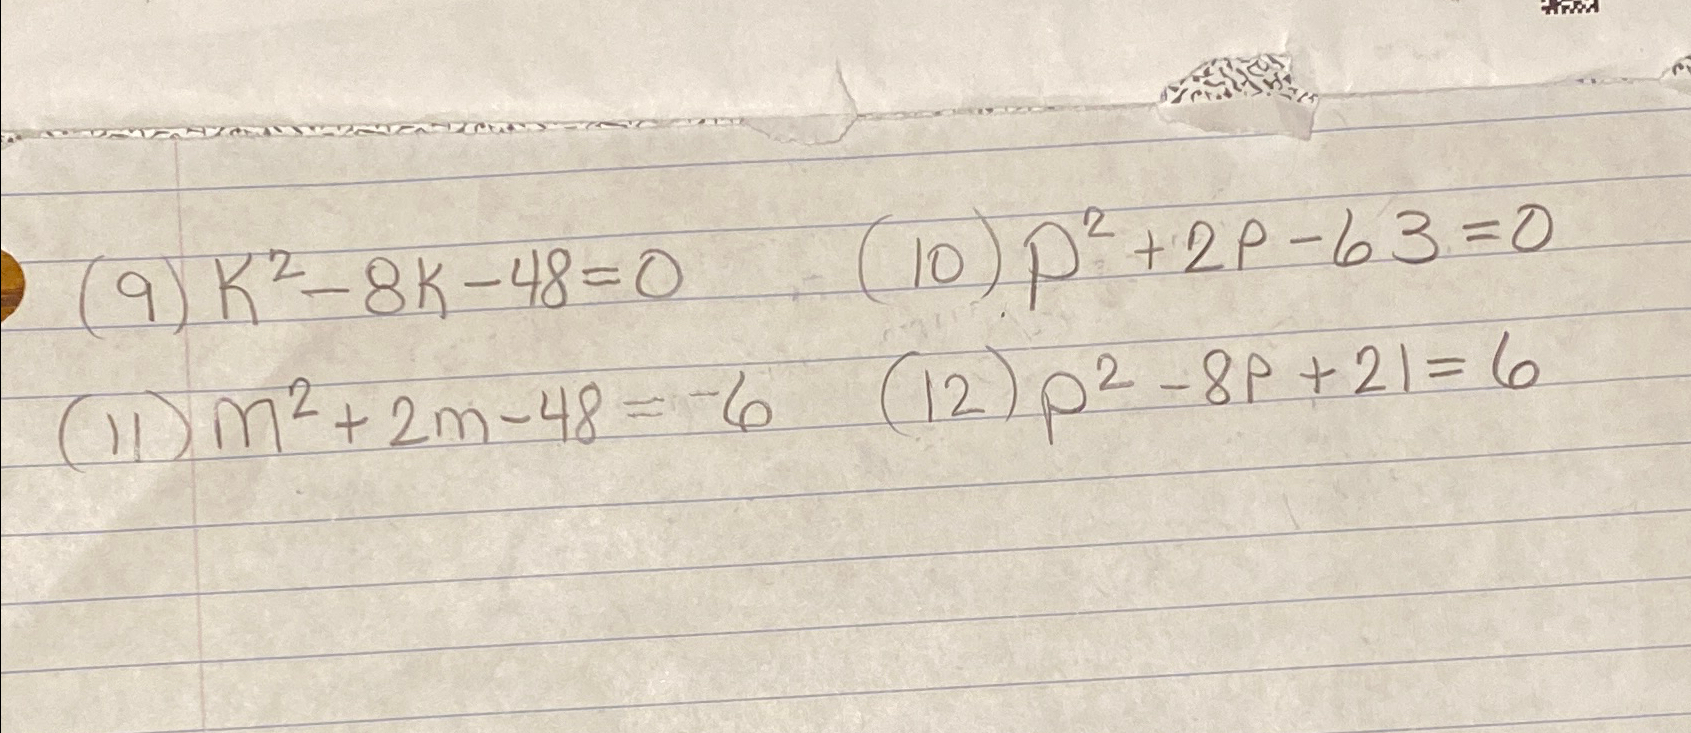 (9) K² - 8K - 48 = 0 (10) p² + 2p - 63 = 0
(11) m² + 2m - 48 = ⁻6 (12) p² - 8p + 21 = 6